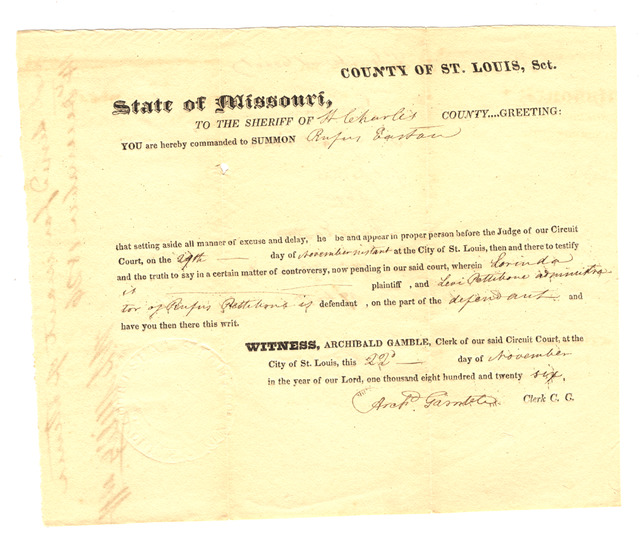 COUNTY OF ST. LOUIS, Sct.
State of Missouri,
TO THE SHERIFF OF St Charles COUNTY....GREETING:
YOU are hereby commanded to SUMMON Rufus Easton
that setting aside all manner of excuse and delay, he be and appear in proper person before the Judge of our Circuit
Court, on the 29th day of November instant at the City of St. Louis, then and there to testify
and the truth to say in a certain matter of controversy, now pending in our said court, wherein Lorinda
is plaintiff, and Levi Pettibone administra
tor of Rufus Pettibone is defendant, on the part of the defendant and
have you then there this writ.
WITNESS, ARCHIBALD GAMBLE, Clerk of our said Circuit Court, at the
City of St. Louis, this 22d day of November
in the year of our Lord, one thousand eight hundred and twenty six.
Archd. Gamble Clerk C. C.